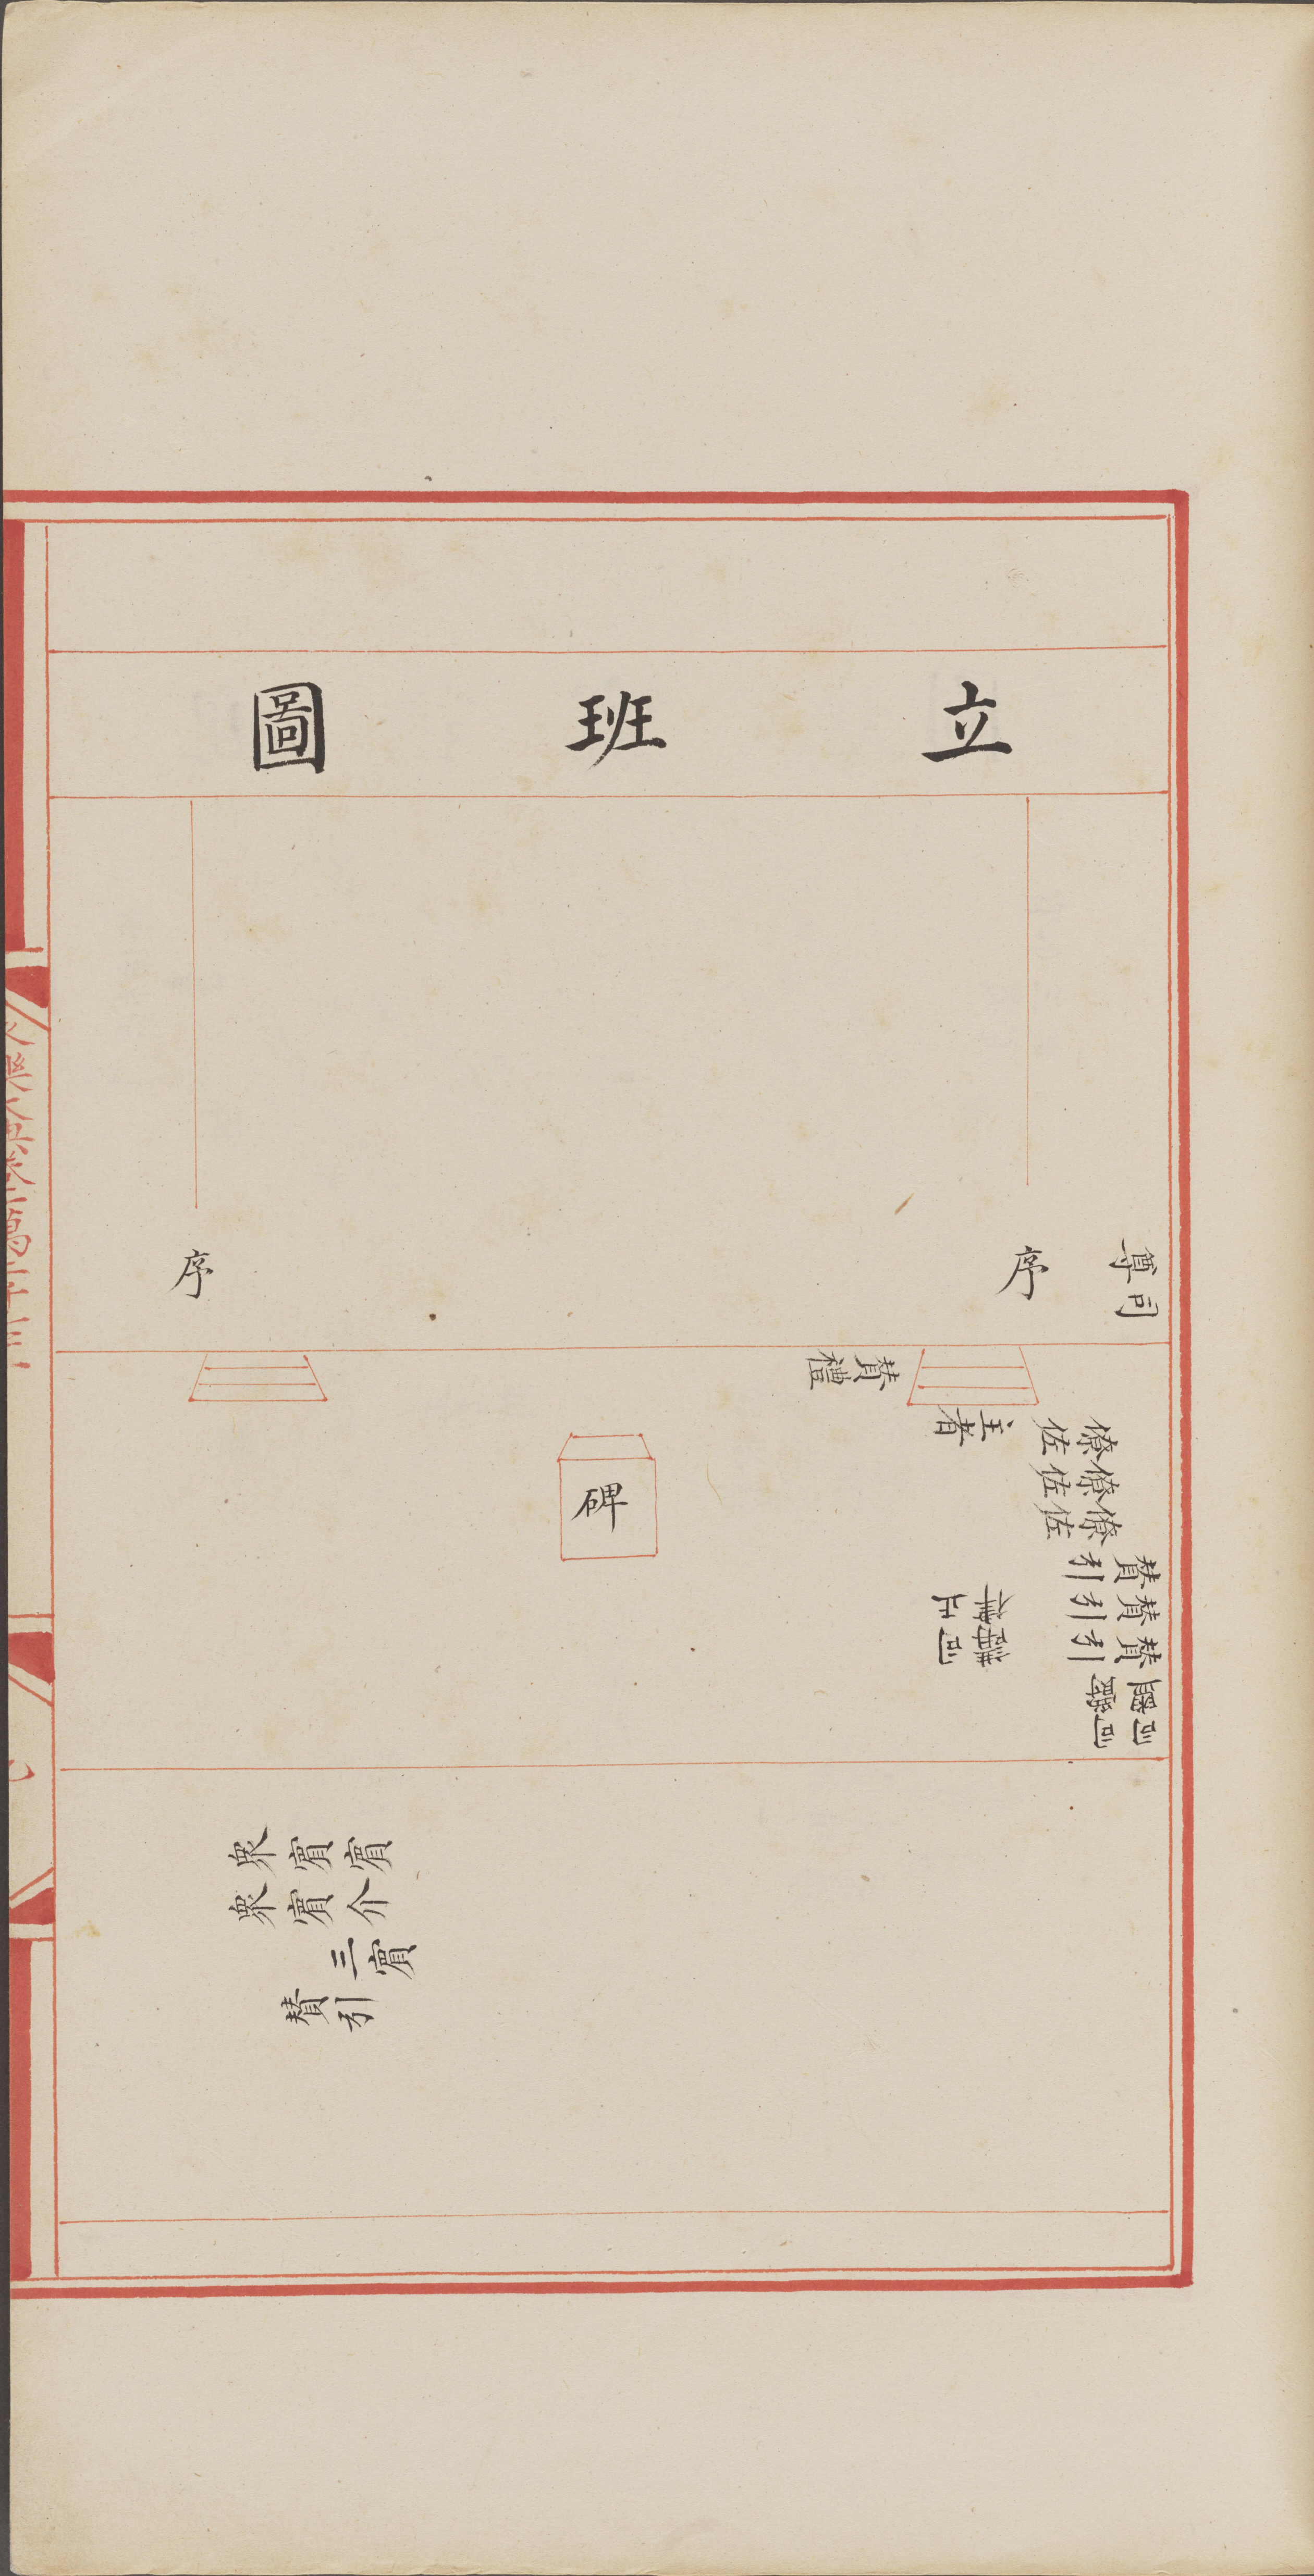 立班圖
序
序
司尊
贊禮
主者
僚佐
僚佐
僚佐
贊引
贊引
贊引
司正
碑
賓
眾賓
介
眾賓
三賓
贊引